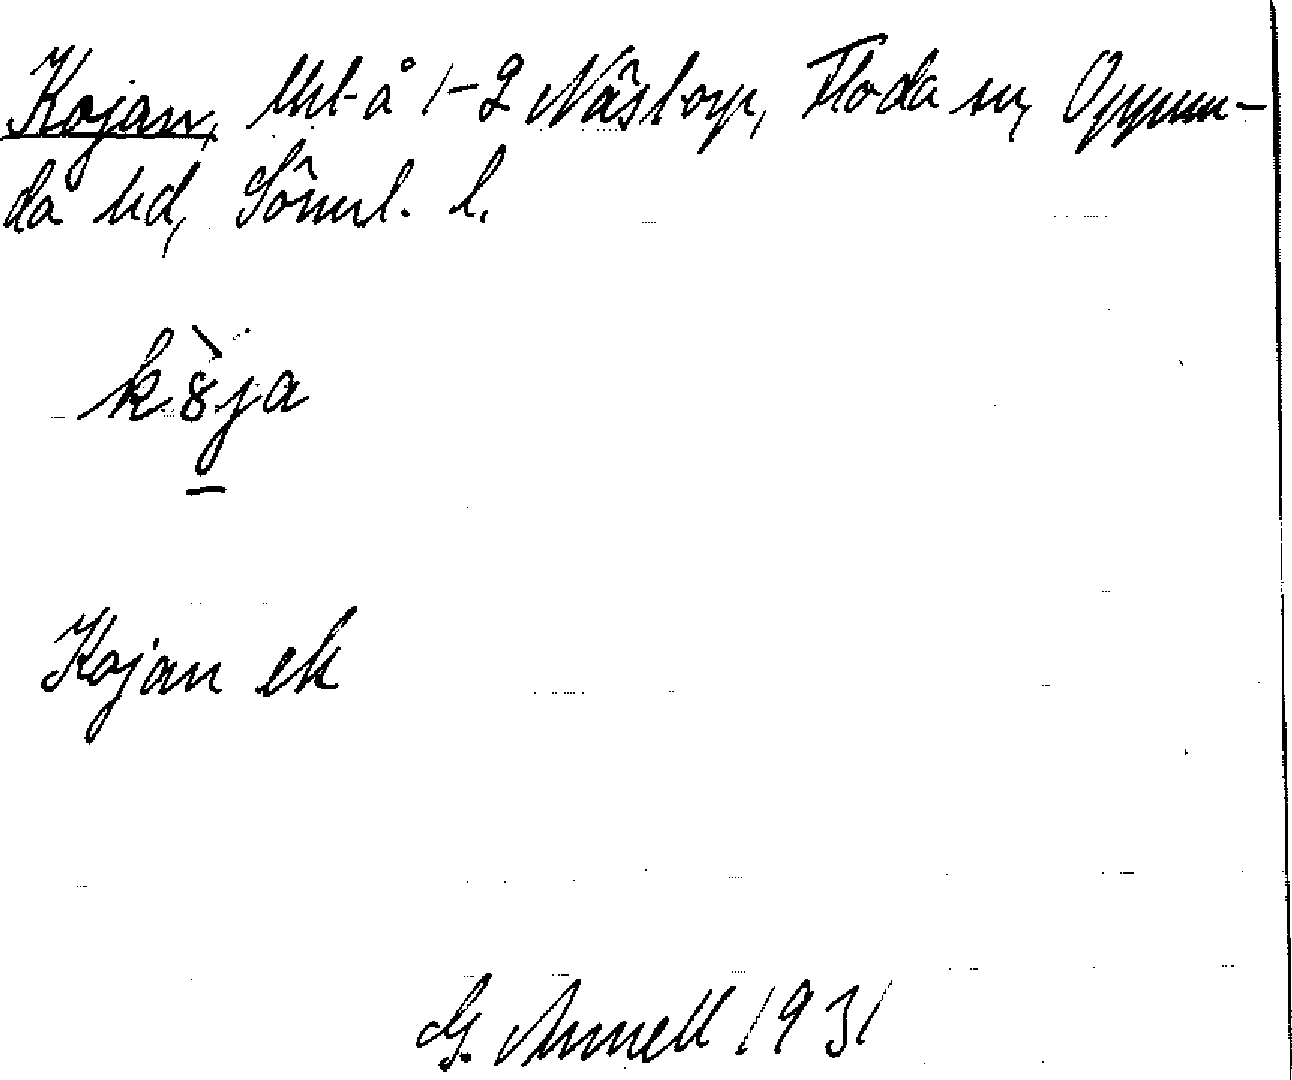 Kojan, Utl å 1-2 Nästorp, Floda sn, Oppun-
da hd, Söml. l.
kȣ̀ja
Kojan ek
G. Annell 1931